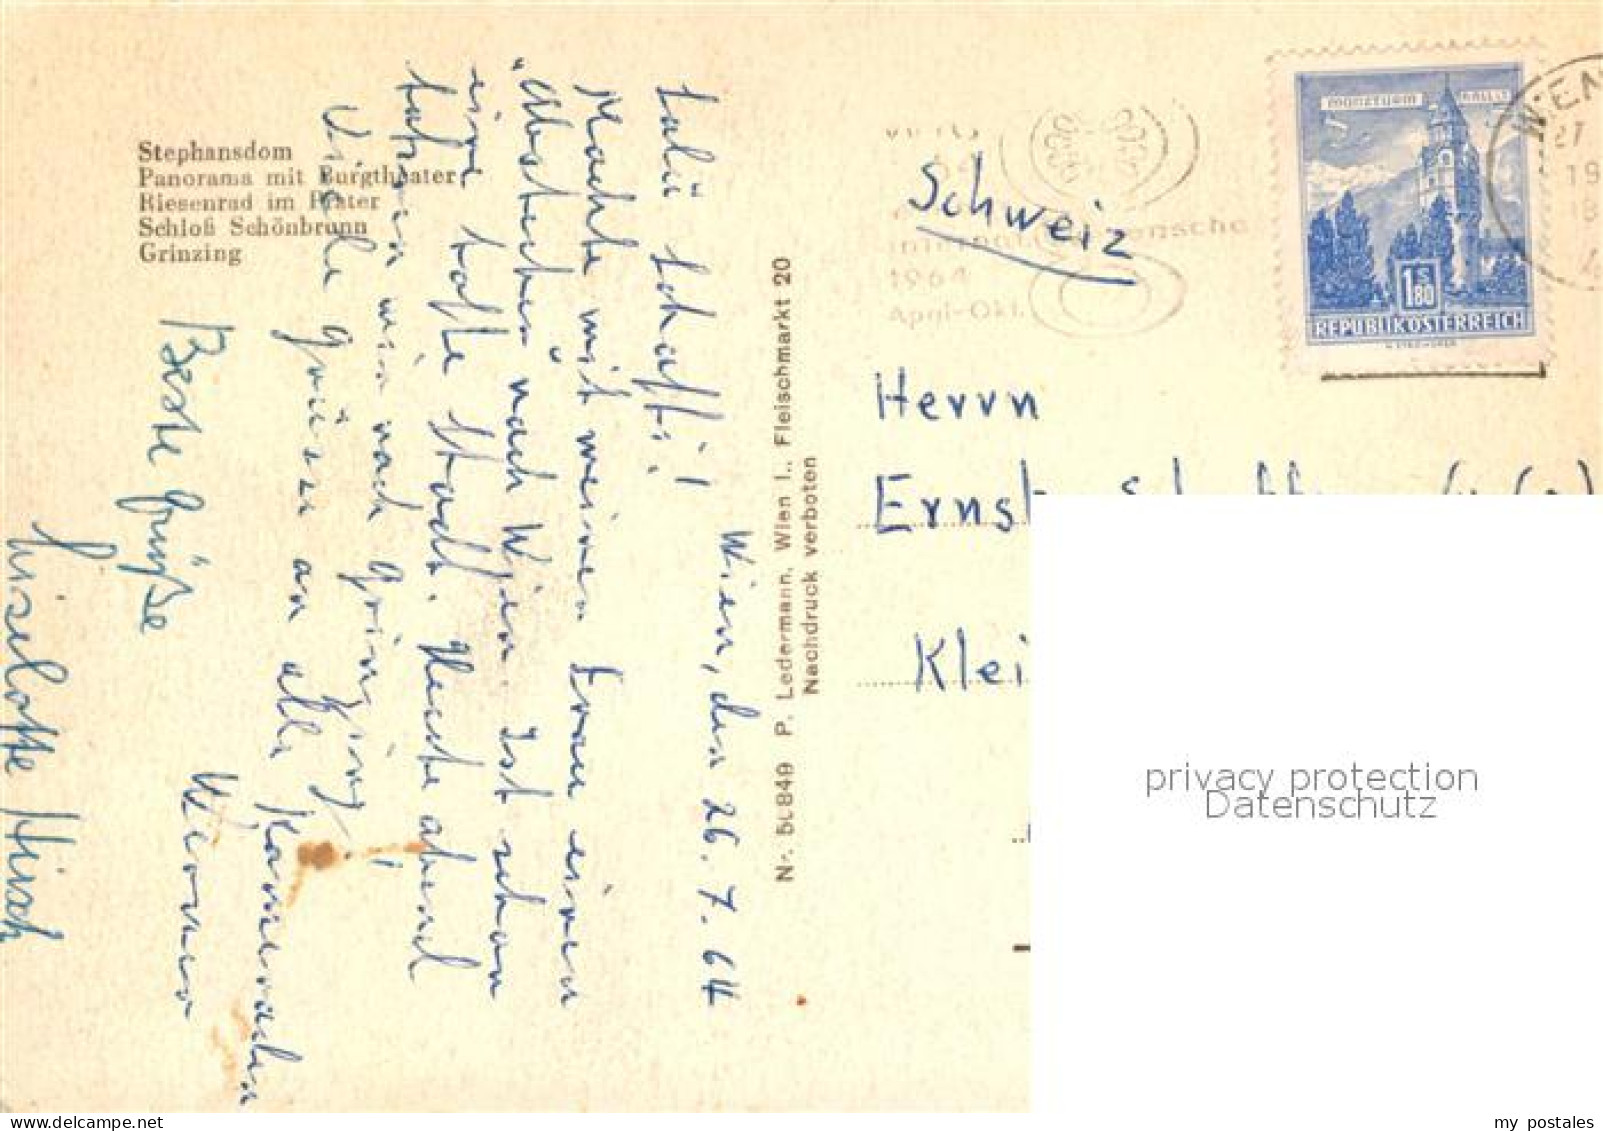 Stephansdom
Panorama mit Burgtheater
Riesenrad im Prater
Schloß Schönbrunn
Grinzing
Wien, den 26.7.64
Salü Schaffi!
Mache mit meiner Frau einen
"Abstecher" nach Wien. Ist schon
eine tolle Stadt. Heute abend
fahren wir nach Grinzing!
Viele Grüsse an alle Kameraden
Werner
Beste Grüße
Liselotte Hirsch
Nr. 50849 P. Ledermann, Wien I., Fleischmarkt 20
Nachdruck verboten
1964
April-Okt.
WIEN
27
MÜNZTURM HALL i. T.
1 S 80
REPUBLIK ÖSTERREICH
Schweiz
Herrn
Ernst
Klei
privacy protection
Datenschutz
my postales
www.delcampe.net